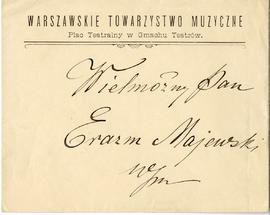 WARSZAWSKIE TOWARZYSTWO MUZYCZNE
Plac Teatralny w Gmachu Teatrów.
Wielmożny Pan
Erazm Majewski